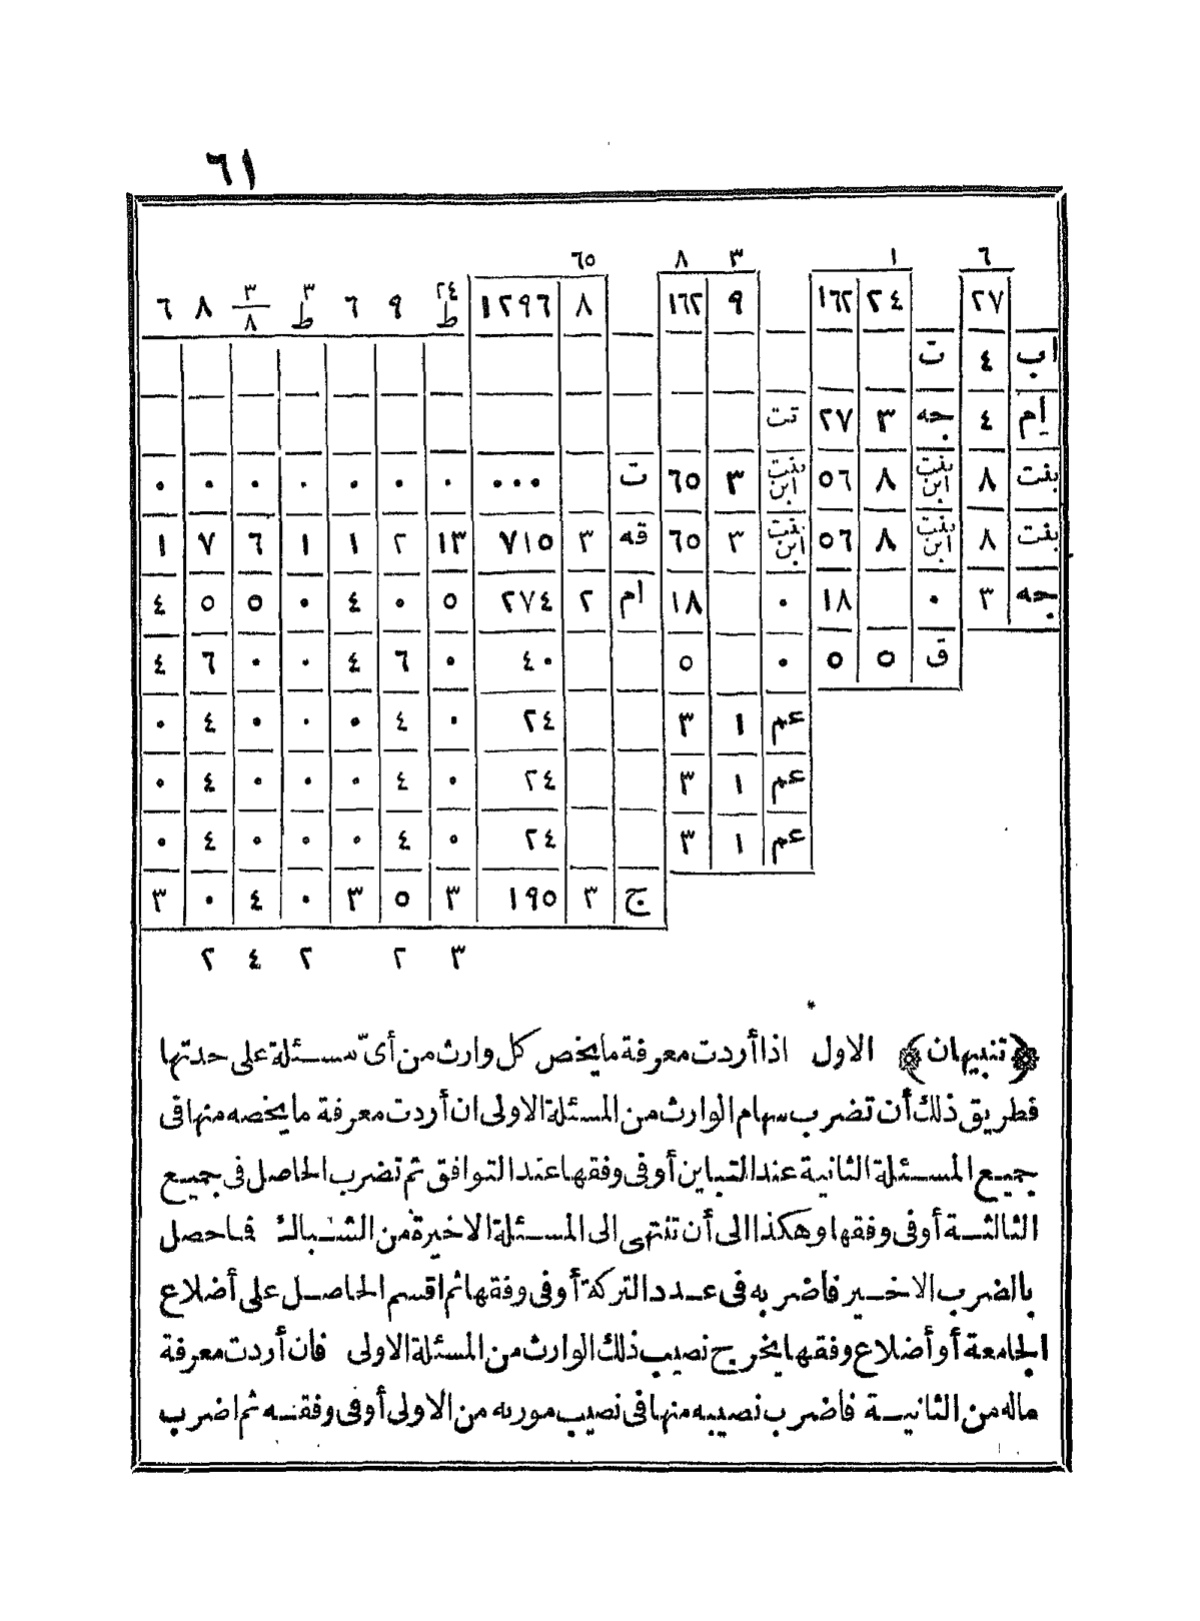 ٦١
٦ ١ ٣ ٨ ٦٥
٢٧ ٢٤ ١٦٢ ٩ ١٦٢ ٨ ١٢٩٦ ٢٤ ط ٩ ٦ ٣ ط ٣ ٨ ٨ ٦
اب ٤ ت
ام ٤ جه ٣ ٢٧ تت
بنت ٨ بنت ابن ٨ ٥٦ بنت ابن ٣ ٦٥ ت ٠٠٠ ٠ ٠ ٠ ٠ ٠ ٠ ٠
بنت ٨ بنت ابن ٨ ٥٦ بنت ابن ٣ ٦٥ قه ٣ ٧١٥ ١٣ ٢ ١ ١ ٦ ٧ ١
جه ٣ ٠ ١٨ ٠ ١٨ ام ٢ ٢٧٤ ٥ ٠ ٤ ٠ ٥ ٥ ٤
ق ٥ ٥ ٠ ٥ ٤٠ ٠ ٦ ٤ ٠ ٠ ٦ ٤
عم ١ ٣ ٢٤ ٠ ٤ ٠ ٠ ٠ ٤ ٠
عم ١ ٣ ٢٤ ٠ ٤ ٠ ٠ ٠ ٤ ٠
عم ١ ٣ ٢٤ ٠ ٤ ٠ ٠ ٠ ٤ ٠
ج ٣ ١٩٥ ٣ ٥ ٣ ٠ ٤ ٠ ٣
٣ ٢ ٢ ٤ ٢
﴿تنبيهان﴾ الاول اذا أردت معرفة ما يخص كل وارث من أىّ مسئلة على حدتها
فطريق ذلك أن تضرب سهام الوارث من المسئلة الاولى ان أردت معرفة ما يخصه منها فى
جميع المسئلة الثانية عند التباين أو فى وفقها عند التوافق ثم تضرب الحاصل فى جميع
الثالثة أو فى وفقها وهكذا الى أن تنتهى الى المسئلة الاخيرة من الشباك فما حصل
بالضرب الاخير فاضربه فى عدد التركة أو فى وفقها ثم اقسم الحاصل على أضلاع
الجامعة أو أضلاع وفقها يخرج نصيب ذلك الوارث من المسئلة الاولى فان أردت معرفة
ماله من الثانية فاضرب نصيبه منها فى نصيب مورثه من الاولى أو فى وفقه ثم اضرب